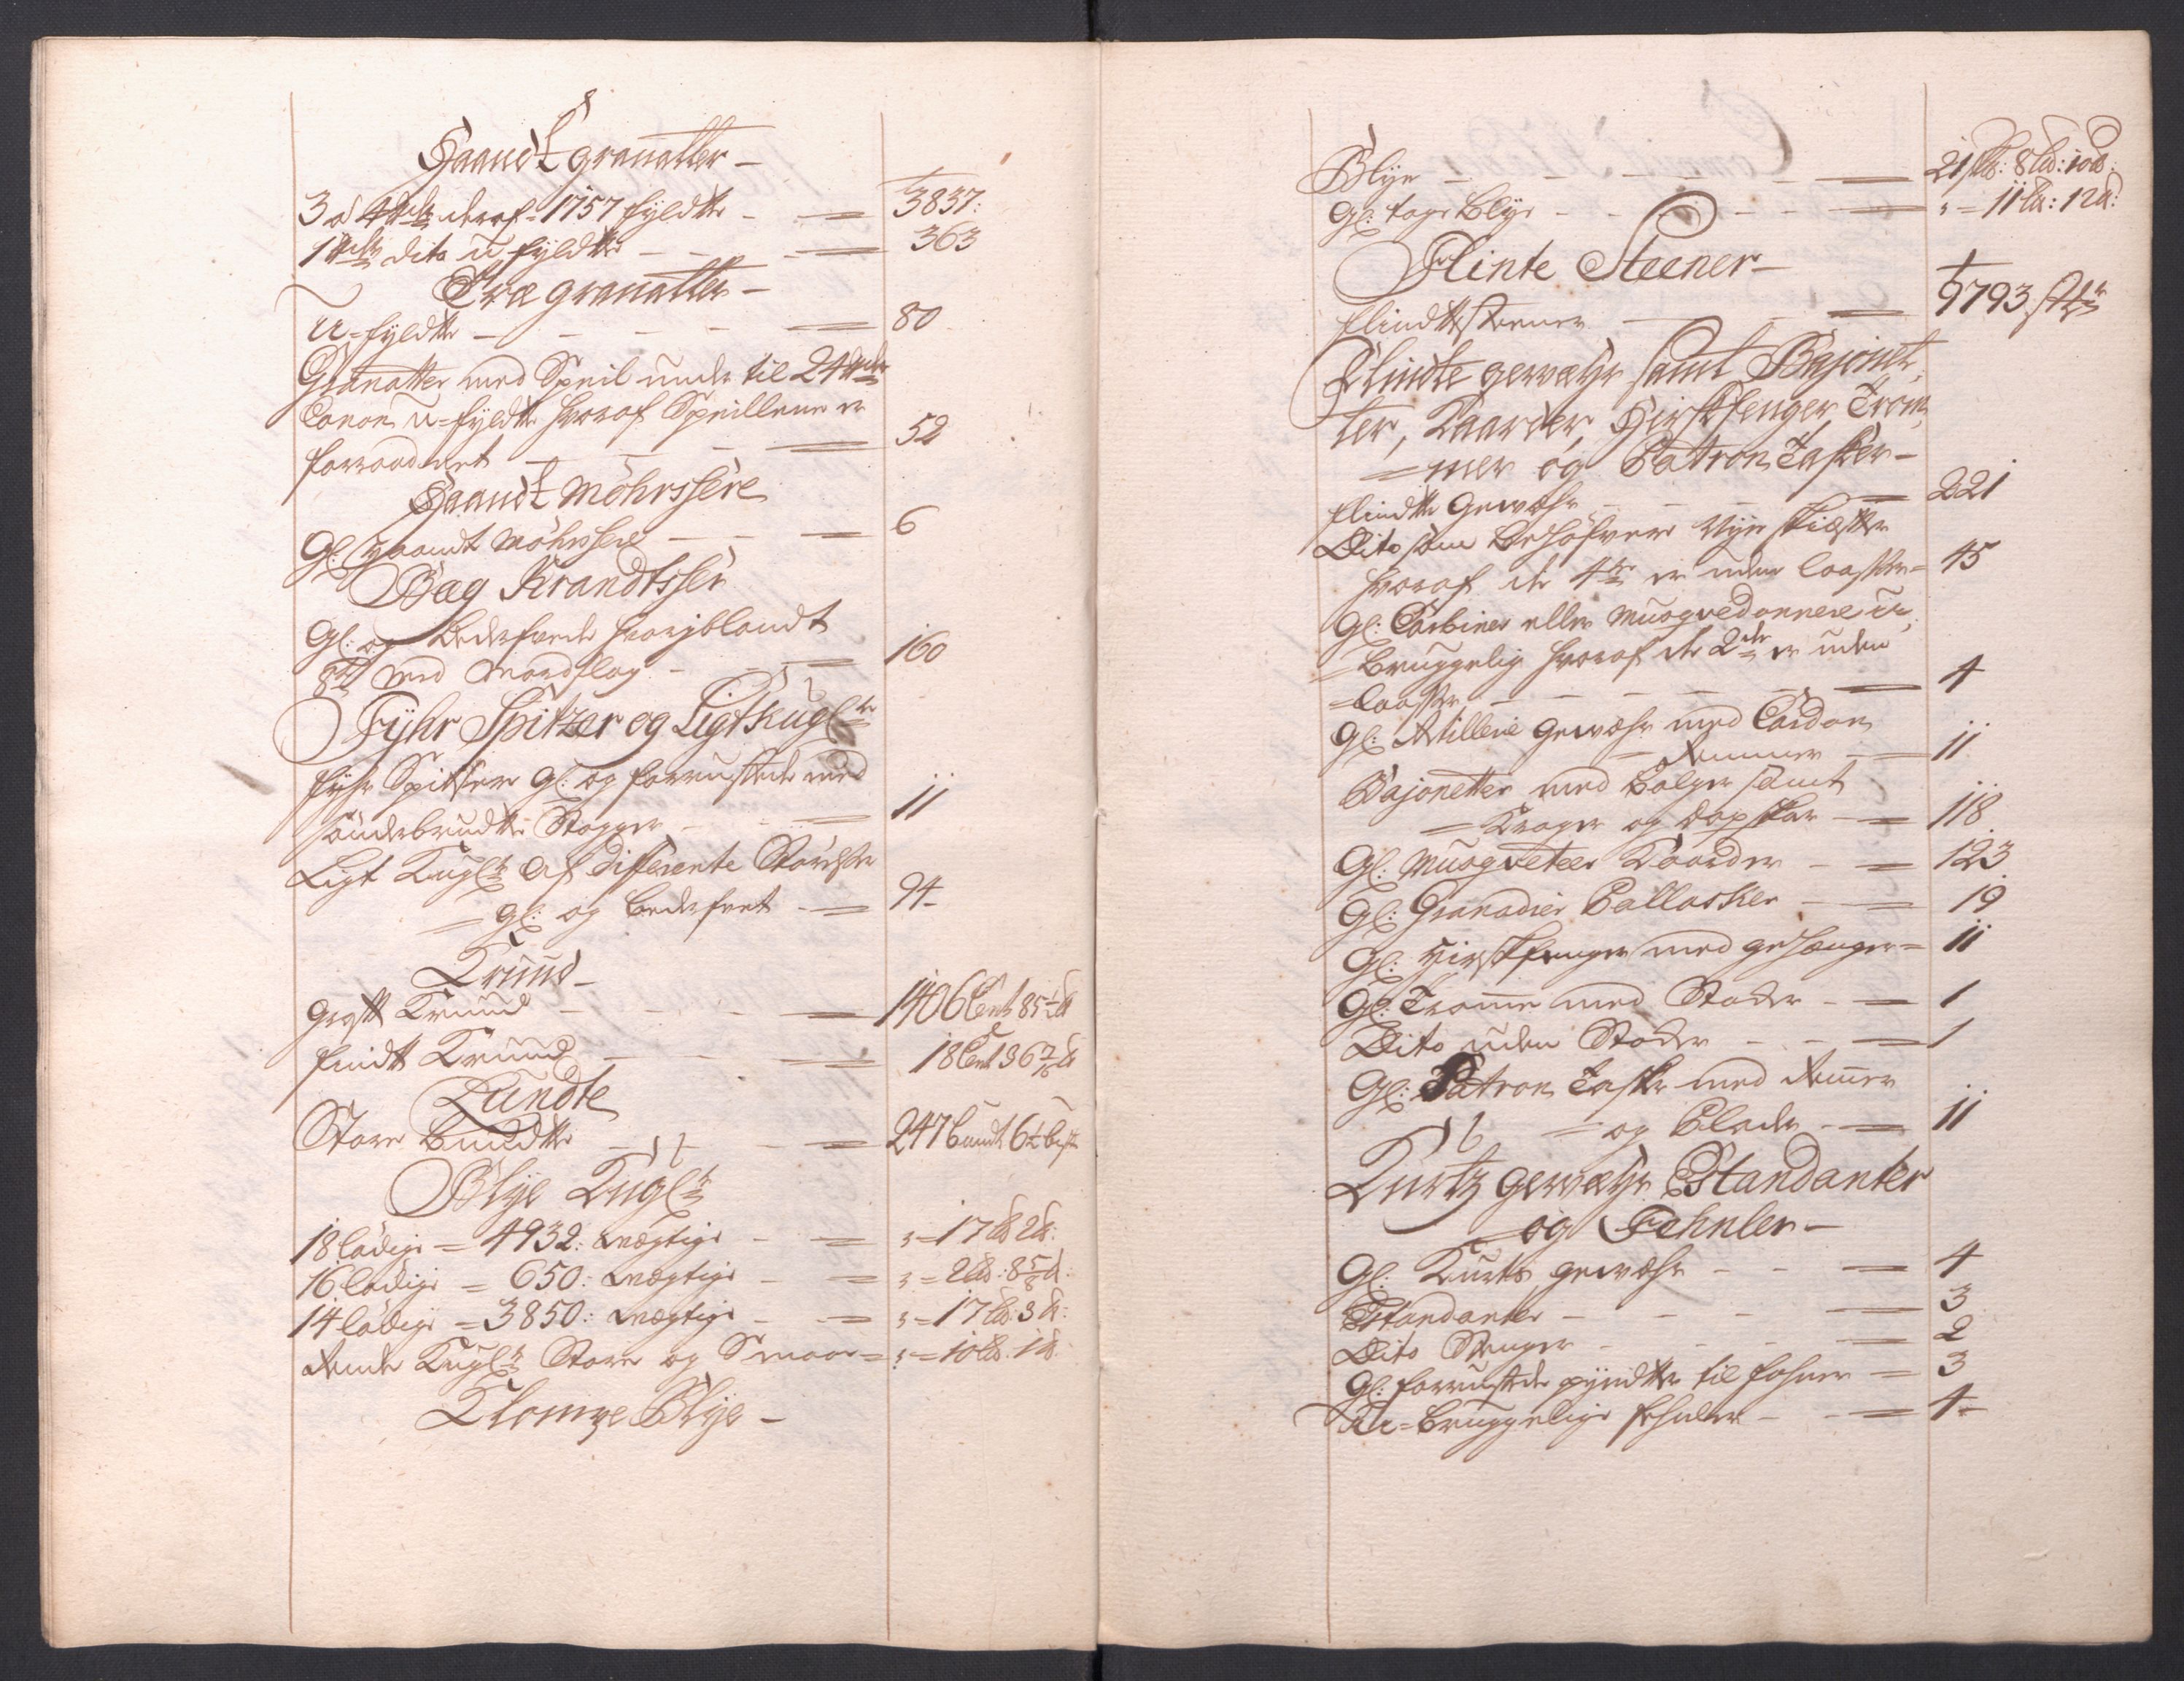 Haandt granatter
3 a 4 deraf 1757 fyldte 3837:
1 dito u fyldte 363
Træ granatter
U-fyldte 80
Granatter med Speil under til 24
Canon u-fyldte hvoraf Speillene er
forraadnet 52
Haandt Möhrssere
Gl: Haandt Möhrssere 6
Bæg Krandtsser
Gl: og bedervede hvoriblandt
8 med Mordslag 160
Fyhr Spitzer og Ligtkugl
fyhr Spitser Gl: og forrustede med
sönderbrudte Stager 11
Ligt Kugl af differente Störrelse
gl: og bedervet 94
Krud
Groft Krud 1406 Cent 85
fiindt Krud 18 Cent
Lundte
Store bundter 247 bundt 6
Blye Kugl
18 lödige 4932: vægtige 17 2
16 lödige 650: vægtige 2 8 5/8
14 lödige 3850: vægtige 17 3
Runde Kugl Store og Smaae 10 1
Klompe Blye
Blye 21 8 10
Gl: tage blye 11 12
Flinte Steener
flindtesteener 9793 st
Flindte gewæhr samt Bajonet
ter, Kaarder, Hirskfenger, Trom
mer og Patron Tasker
flindte Gewæhr 221
Dito som behöfver nye skiefter
hvoraf de 4 er uden laasse 45
Gl: Carbiner eller Musqvedonnere u
brugelig hvoraf de 2 er uden
laasse 4
Gl: Artillerie gewæhr med Cardon
Remmer 11
Bajonetter med balger samt
Krager og dopskor 118
Gl: Musqveteer Kaarder 123
Gl: Granadier Pallasker 19
Gl: Hirskfenger med gehænger 11
Gl: Tromme med Stoeker 1
Dito uden Stoeker 1
Gl: Patron Tasker med Remmer
og Plader 11
Kurtz gewæhr Estandanter
og Fehnler
Gl: Kurts gewæhr 4
Estandanter 3
Dito Stenger 2
Gl: forrustede pyndter til fahner 3
U-brugelige fehnler 4